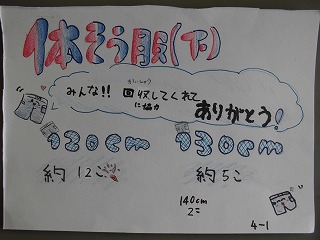 体そう服(下)
かいしゅう
みんな!! 回収してくれて
に協力
ありがとう!
120cm 130cm
約12こ 約5こ
140cm
2こ
4-1